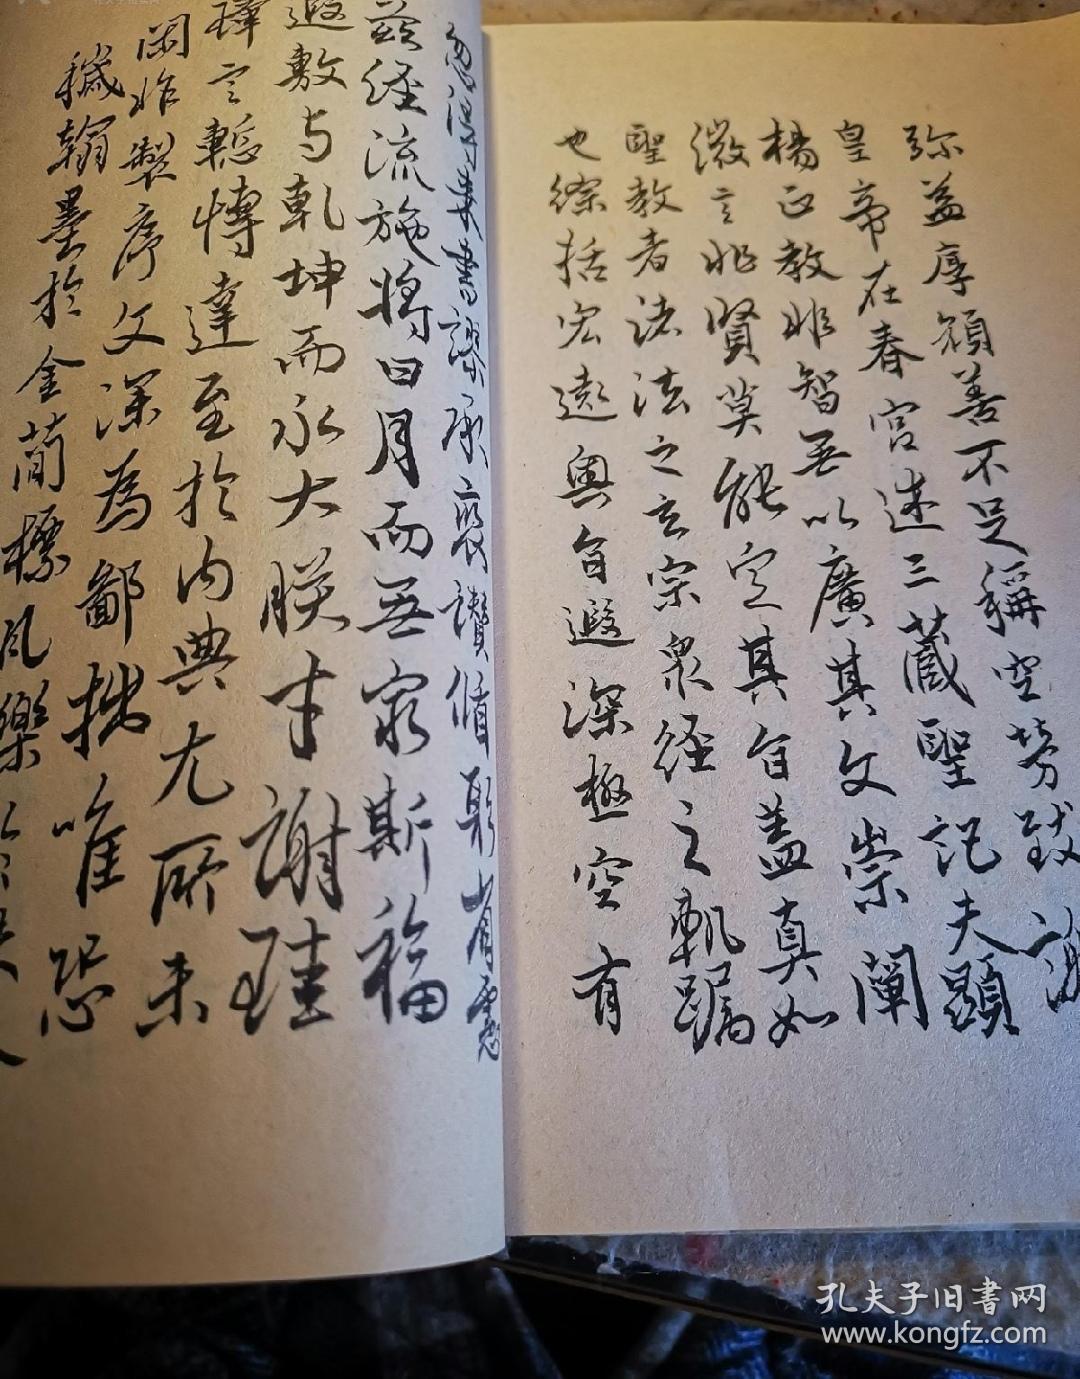 弥益厚顔善不足稱空勞致謝
皇帝在春宮述三藏聖記夫顯
揚正教非智無以廣其文崇闡
微言非賢莫能定其旨蓋真如
聖教者諸法之玄宗衆經之軌躅
也綜括宏遠奧旨遐深極空有
忽得來書謬承褒讚循躬省慮
茲經流施將日月而無窮斯福
遐敷與乾坤而永大朕才謝珪
璋言慙博達至於内典尤所未
閑昨製序文深為鄙拙唯恐
穢翰墨於金簡標瓦礫於珠
孔夫子旧書网
www.kongfz.com